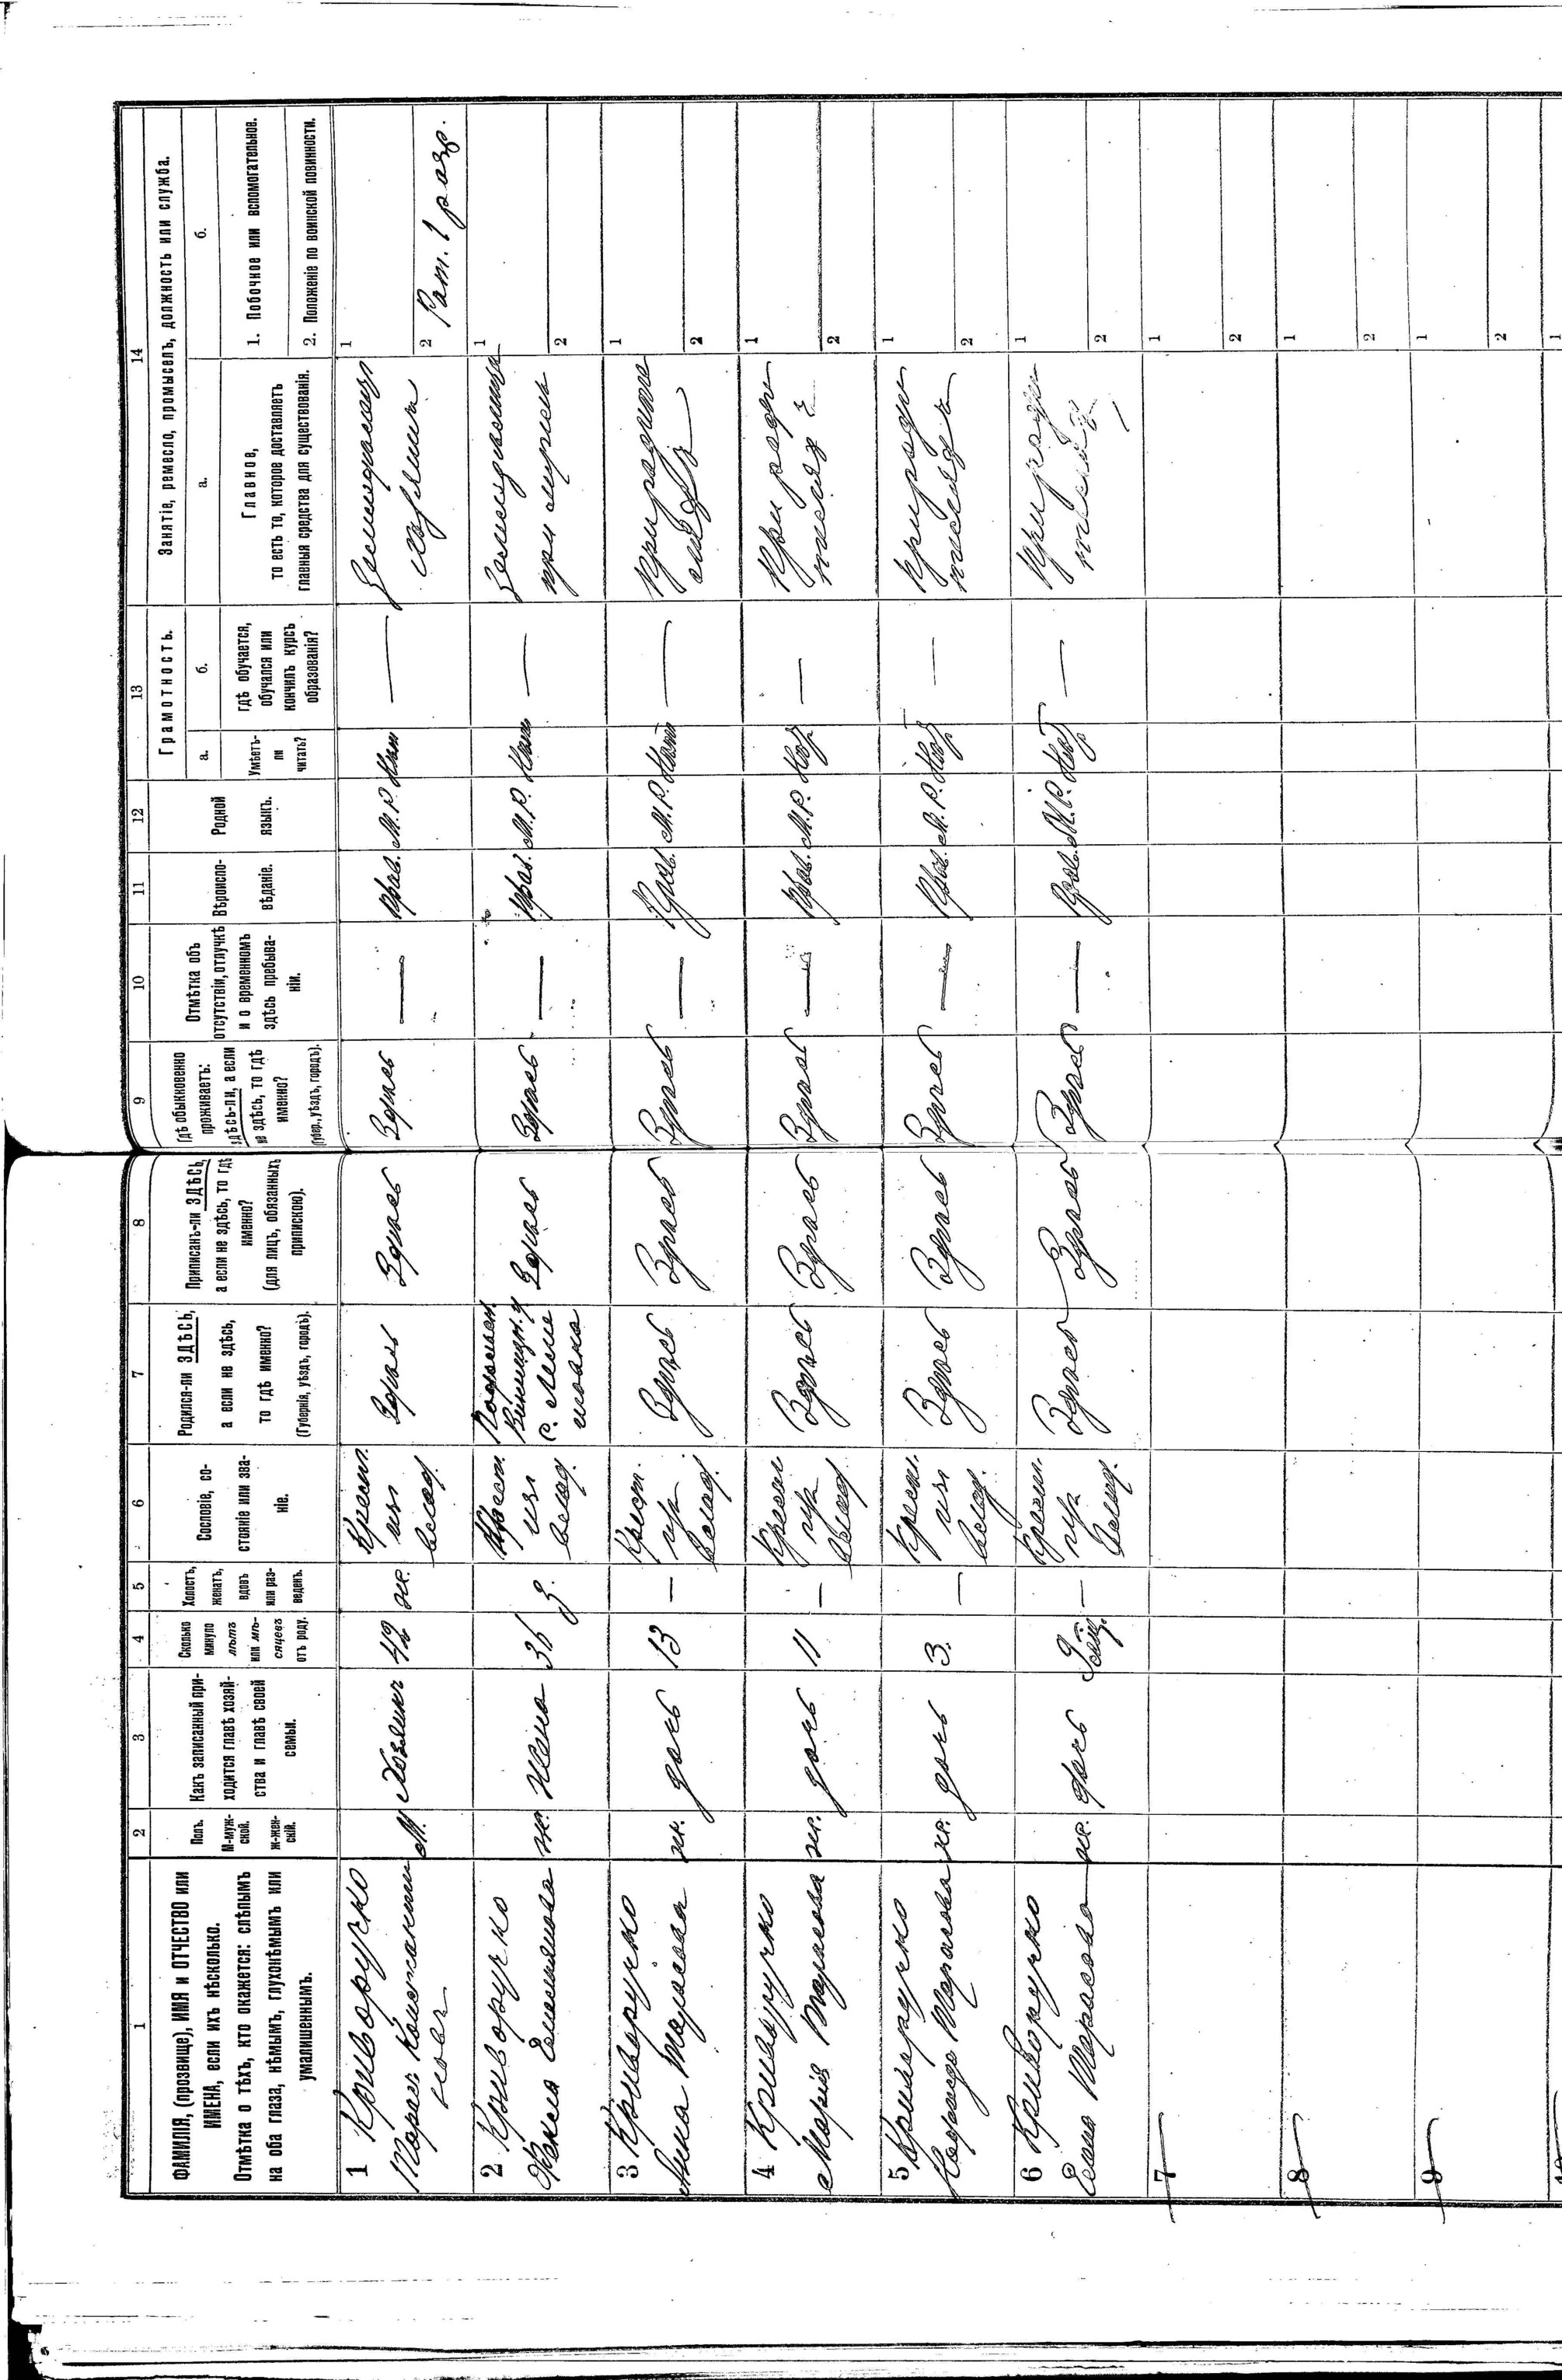 1
ФАМИЛІЯ, (прозвище), ИМЯ и ОТЧЕСТВО или
ИМЕНА, если ихъ нѣсколько.
Отмѣтка о тѣхъ, кто окажется: слѣпымъ
на оба глаза, нѣмымъ, глухонѣмымъ или
умалишеннымъ.
2
Полъ.
М-муж-
ской.
ж-жен-
скій.
3
Какъ записанный при-
ходится главѣ хозяй-
ства и главѣ своей
семьи.
4
Сколько
минуло
лѣтъ
или мѣ-
сяцевъ
отъ роду.
5
Холостъ,
женатъ,
вдовъ
или раз-
веденъ.
6
Сословіе, со-
стояніе или зва-
ніе.
7
Родился-ли ЗДѢСЬ,
а если не здѣсь,
то гдѣ именно?
(Губернія, уѣздъ, городъ).
8
Приписанъ-ли ЗДѢСЬ,
а если не здѣсь, то гдѣ
именно?
(для лицъ, обязанныхъ
припискою).
9
Гдѣ обыкновенно
проживаетъ:
здѣсь-ли, а если
не здѣсь, то гдѣ
именно?
(Губер., уѣздъ, городъ).
10
Отмѣтка объ
отсутствіи, отлучкѣ
и о временномъ
здѣсь пребыва-
ніи.
11
Вѣроиспо-
вѣданіе.
12
Родной
языкъ.
13
Грамотность.
а.
Умѣетъ-
ли
читать?
б.
гдѣ обучается,
обучался или
кончилъ курсъ
образованія?
14
Занятіе, ремесло, промыселъ, должность или служба.
а.
Главное,
то есть то, которое доставляетъ
главныя средства для существованія.
б.
1. Побочное или вспомогательное.
2. Положеніе по воинской повинности.
1 Криворучко
Тарас Константи
новъ
М.
Хозяинъ
42
ж.
Крестн.
изъ
влад.
Здѣсь
Здѣсь
Здѣсь
—
Прав.
М.Р.
Нѣт
—
1
2 Рат. 1 разр.
2 Криворучко
Емельянова
ж.
Жена
36
з.
Крест.
изъ
влад.
Подольск.
Винниц. у
Здѣсь
Здѣсь
—
Прав.
М.Р.
Нѣт
—
при мужѣ
1
2
3 Криворучко
Анна Тарасова
ж.
дочь
13
—
Крест.
изъ
влад.
Здѣсь
Здѣсь
Здѣсь
—
Прав.
М.Р.
Нѣт
—
при родите
ляхъ
1
2
4 Криворучко
Марія Тарасова
ж.
дочь
11
—
Крест
изъ
влад.
Здѣсь
Здѣсь
Здѣсь
—
Прав.
М.Р.
Нѣт
—
при роди
теляхъ
1
2
5 Криворучко
Тарасова
ж.
дочь
3.
—
Крестн.
изъ
влад.
Здѣсь
Здѣсь
Здѣсь
—
Прав.
М.Р.
Нѣт
—
при роди
теляхъ
1
2
6 Криворучко
Елена Тарасова
ж.
дочь
—
Крестн.
изъ
влад.
Здѣсь
Здѣсь
Здѣсь
—
Прав.
М.Р.
Нѣт
—
при роди
теляхъ
1
2
7
1
2
8
1
2
9
1
2
10
1